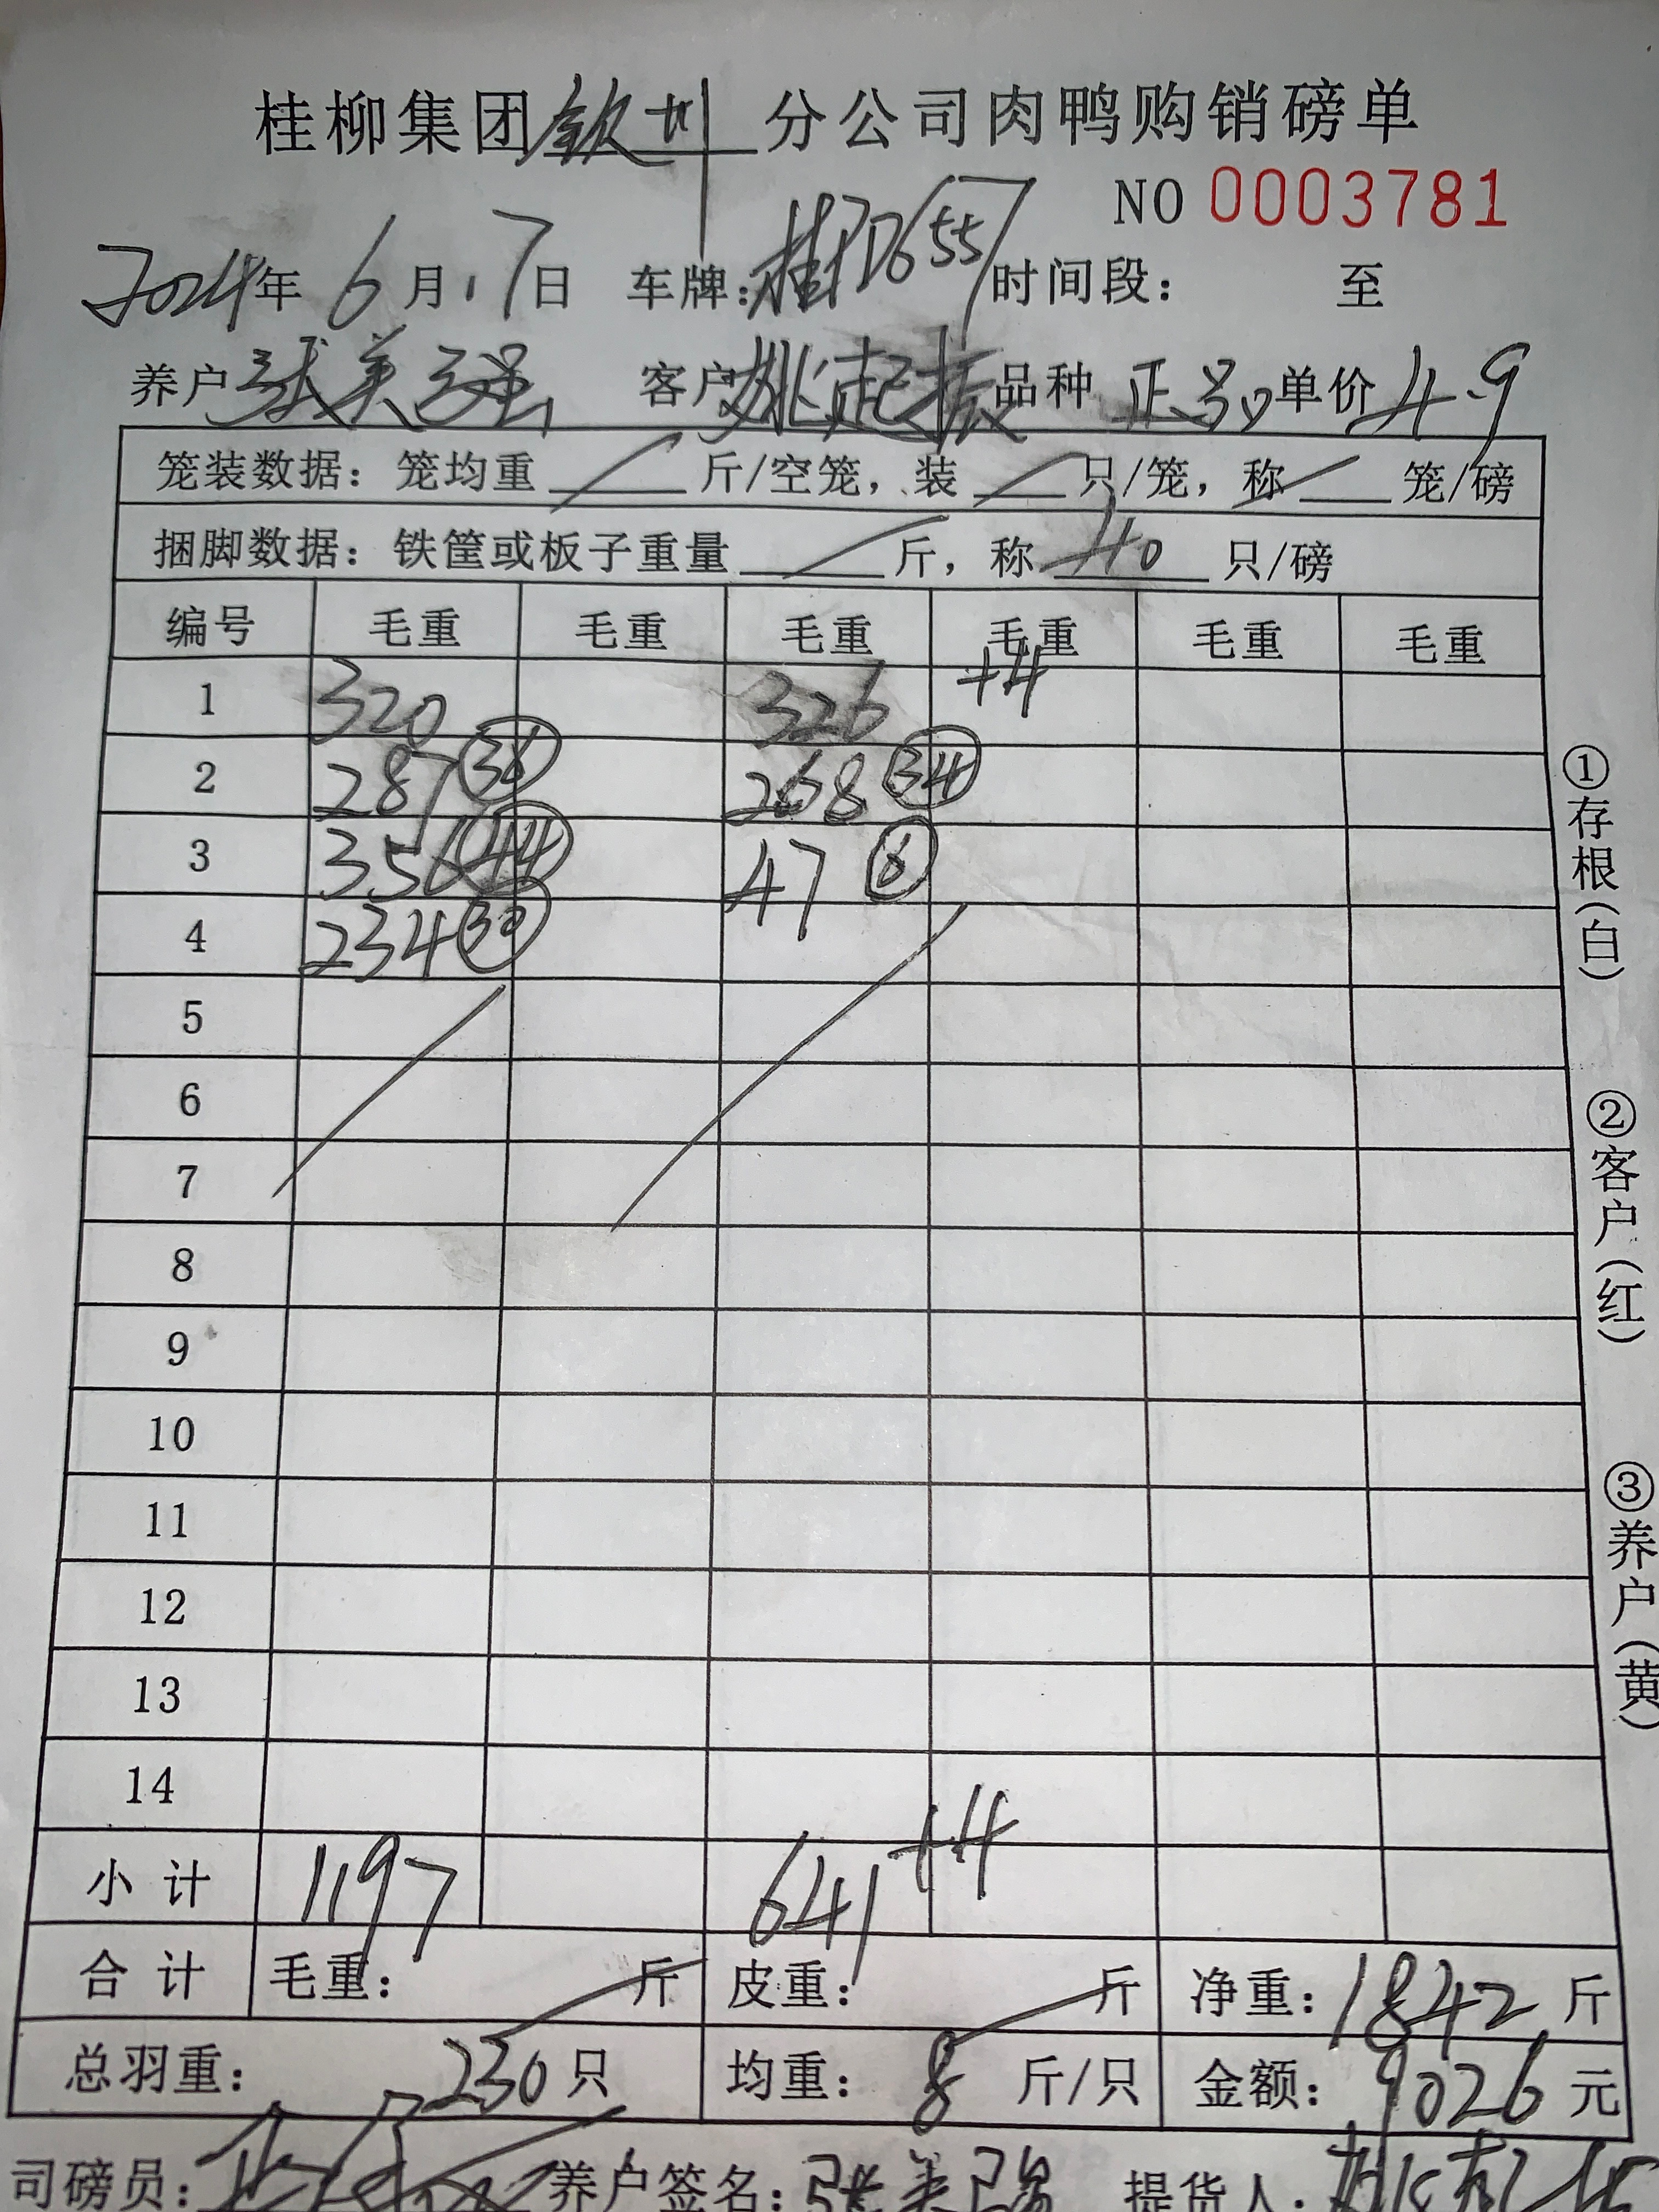 桂柳集团钦州分公司肉鸭购销磅单
NO 0003781
2024年6月17日 车牌：桂PD6557 时间段： 至
养户张美强 客户姚起振 品种 正品 单价4.9
笼装数据：笼均重 斤/空笼，装 只/笼，称 笼/磅
捆脚数据：铁筐或板子重量 斤，称 40 只/磅
编号 毛重 毛重 毛重 毛重 毛重 毛重
1 320 326 +4
2 287 38 268 34
3 356 44 47 6
4 234 30
5
6
7
8
9
10
11
12
13
14
小计 1197 641 +4
合计 毛重： 斤 皮重： 斤 净重：1842 斤
总羽重： 230只 均重： 8 斤/只 金额：9026元
司磅员： 养户签名：张美强 提货人：
①存根（白）
②客户（红）
③养户（黄）